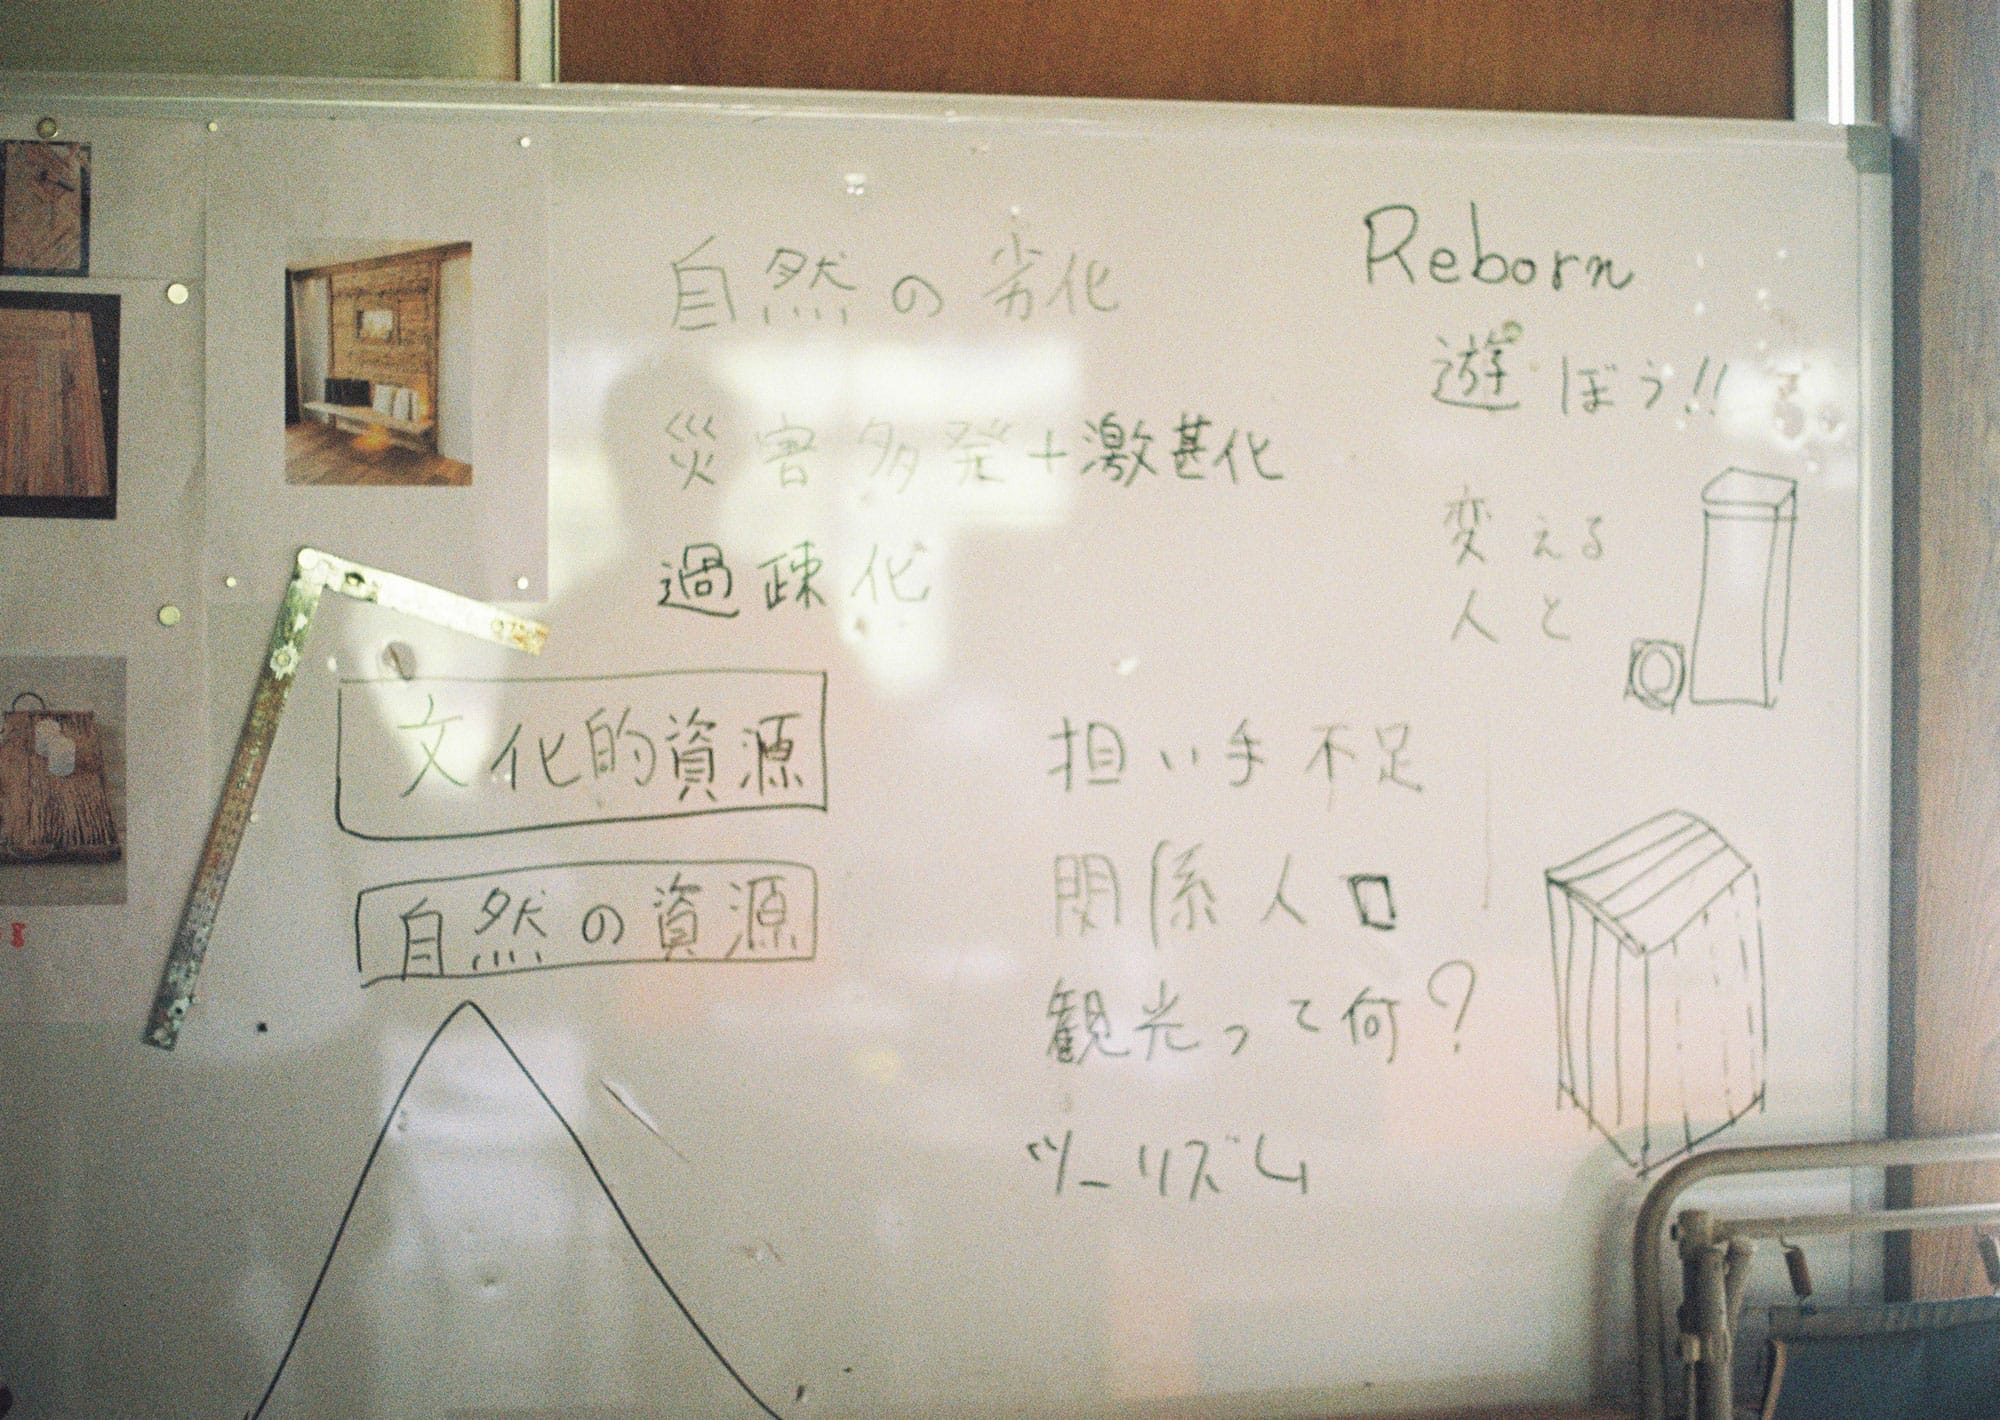 自然の劣化
災害多発+激甚化
過疎化
文化的資源
自然の資源
Reborn
遊ぼう!!
変える
人と
担い手不足
関係人口
観光って何?
ツーリズム